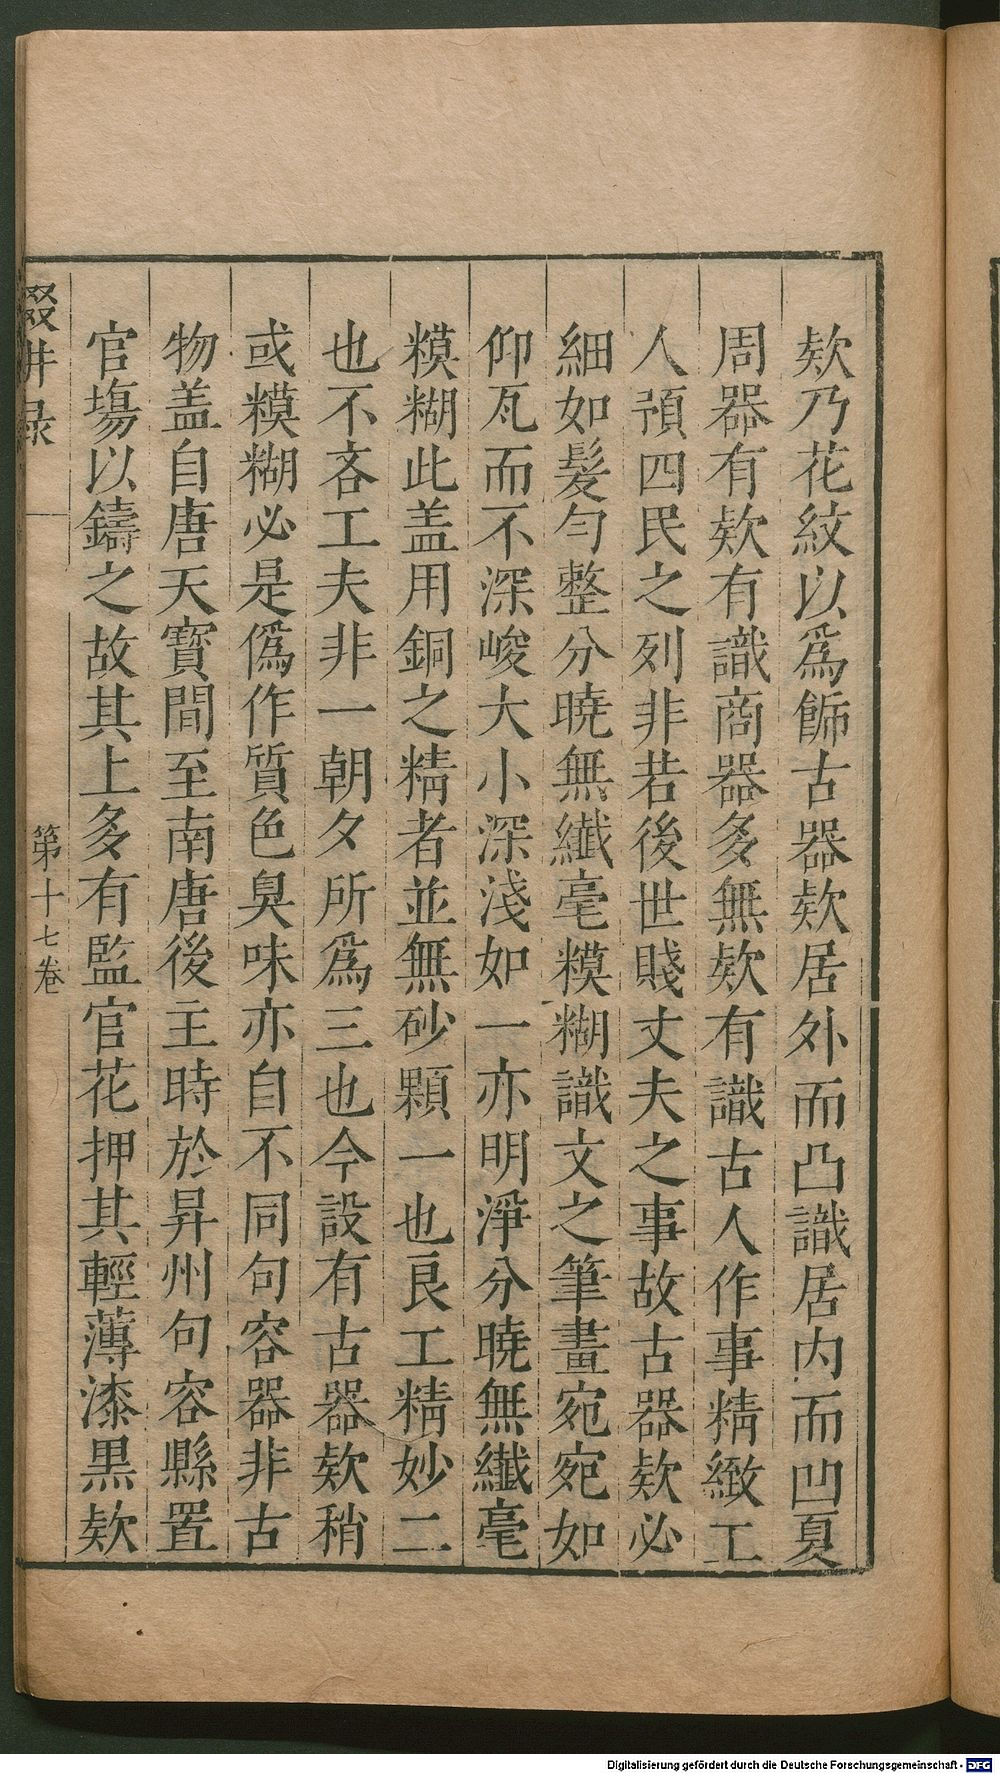 欵乃花紋以爲餙古器欵居外而凸識居内而凹夏
周器有欵有識商器多無欵有識古人作事精緻工
人預四民之列非若後世賤丈夫之事故古器欵必
細如髮勻整分曉無纎毫糢糊識文之筆畫宛宛如
仰瓦而不深峻大小深淺如一亦明淨分曉無纎毫
糢糊此盖用銅之精者並無砂顆一也良工精妙二
也不吝工夫非一朝夕所爲三也今設有古器欵稍
或糢糊必是僞作質色臭味亦自不同句容器非古
物盖自唐天寳間至南唐後主時於昇州句容縣置
官塲以鑄之故其上多有監官花押其輕薄漆黒欵
輟耕录 第十七卷
Digitalisierung gefördert durch die Deutsche Forschungsgemeinschaft - DFG